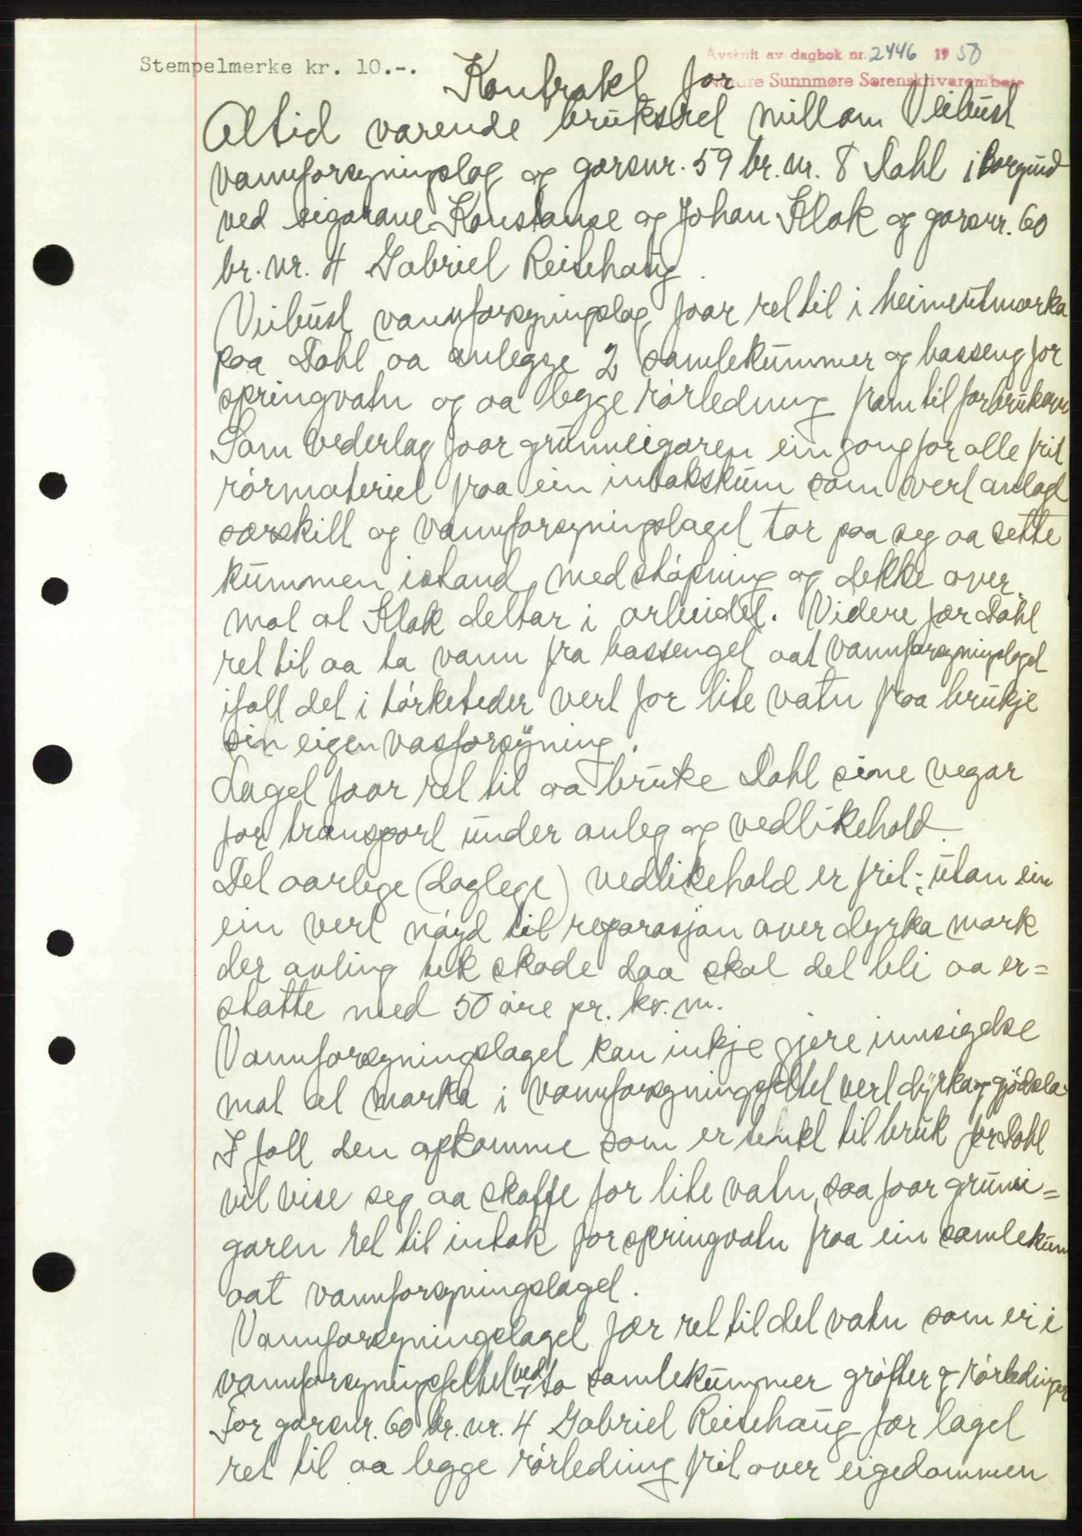 Avskrift av dagbok nr. 2446 1950
Stempelmerke kr. 10.-.
Nordre Sunnmøre Sorenskriverembete
Kontrakt for
Altid varende bruksret millom Veibust
vannforsyningslag og garsnr. 59 br. nr. 8 Dahl i Borgund
ved eigarane Konstanse og Johan Klok og garsnr. 60
br. nr. 4 Gabriel Reitehaug.
Veibust vannforsyningslag faar ret til i heimeutmarka
paa Dahl aa anlegge 2 samlekummer og basseng for
springvatn og aa legge rörledning fram til forbrukarn
Som vederlag faar grunneigaren ein gong for alle frit
rörmateriel fraa ein intakskum som vert anlagt
særskilt og vannforsyningslaget tar paa seg aa sette
kummen istand, med stöpning og dekke over,
mot at Klok deltar i arbeidet. Videre før Dahl
ret til aa ta vann fra bassenget aat vannforsyningslaget
ifall det i törketeder vert for lite vatn fraa brukje
sin eigen vasforsyning.
Laget faar ret til aa bruke Dahl sine vegar
for transport under anleg og vedlikehold
Det aarlege (daglege) vedlikehold er frit; utan ein
ein vert nöyd til reparasjon over dyrka mark
der avling tek skade daa skal det bli aa er=
statte med 50 öre pr. kv. m.
Vannforsyningslaget kan inkje gjere innsigelse
mot at marka i vannforsyningsfeltet vert dyrka og gjödsla.
I fall den opkomme som er tenkt til bruk for Dahl
vil vise seg aa skaffe for lite vatn, saa faar grunei=
garen ret til intak for springvatn fraa ein samlekum
aat vannforsyningslaget.
Vannforsyningslaget fær ret til det vatn som er i
vannforsyningsfeltet ved to samlekummer gröfter og rörledninger
For garsnr. 60 br. nr. 4 Gabriel Reitehaug fær laget
ret til aa legge rörledning frit over eigedommen